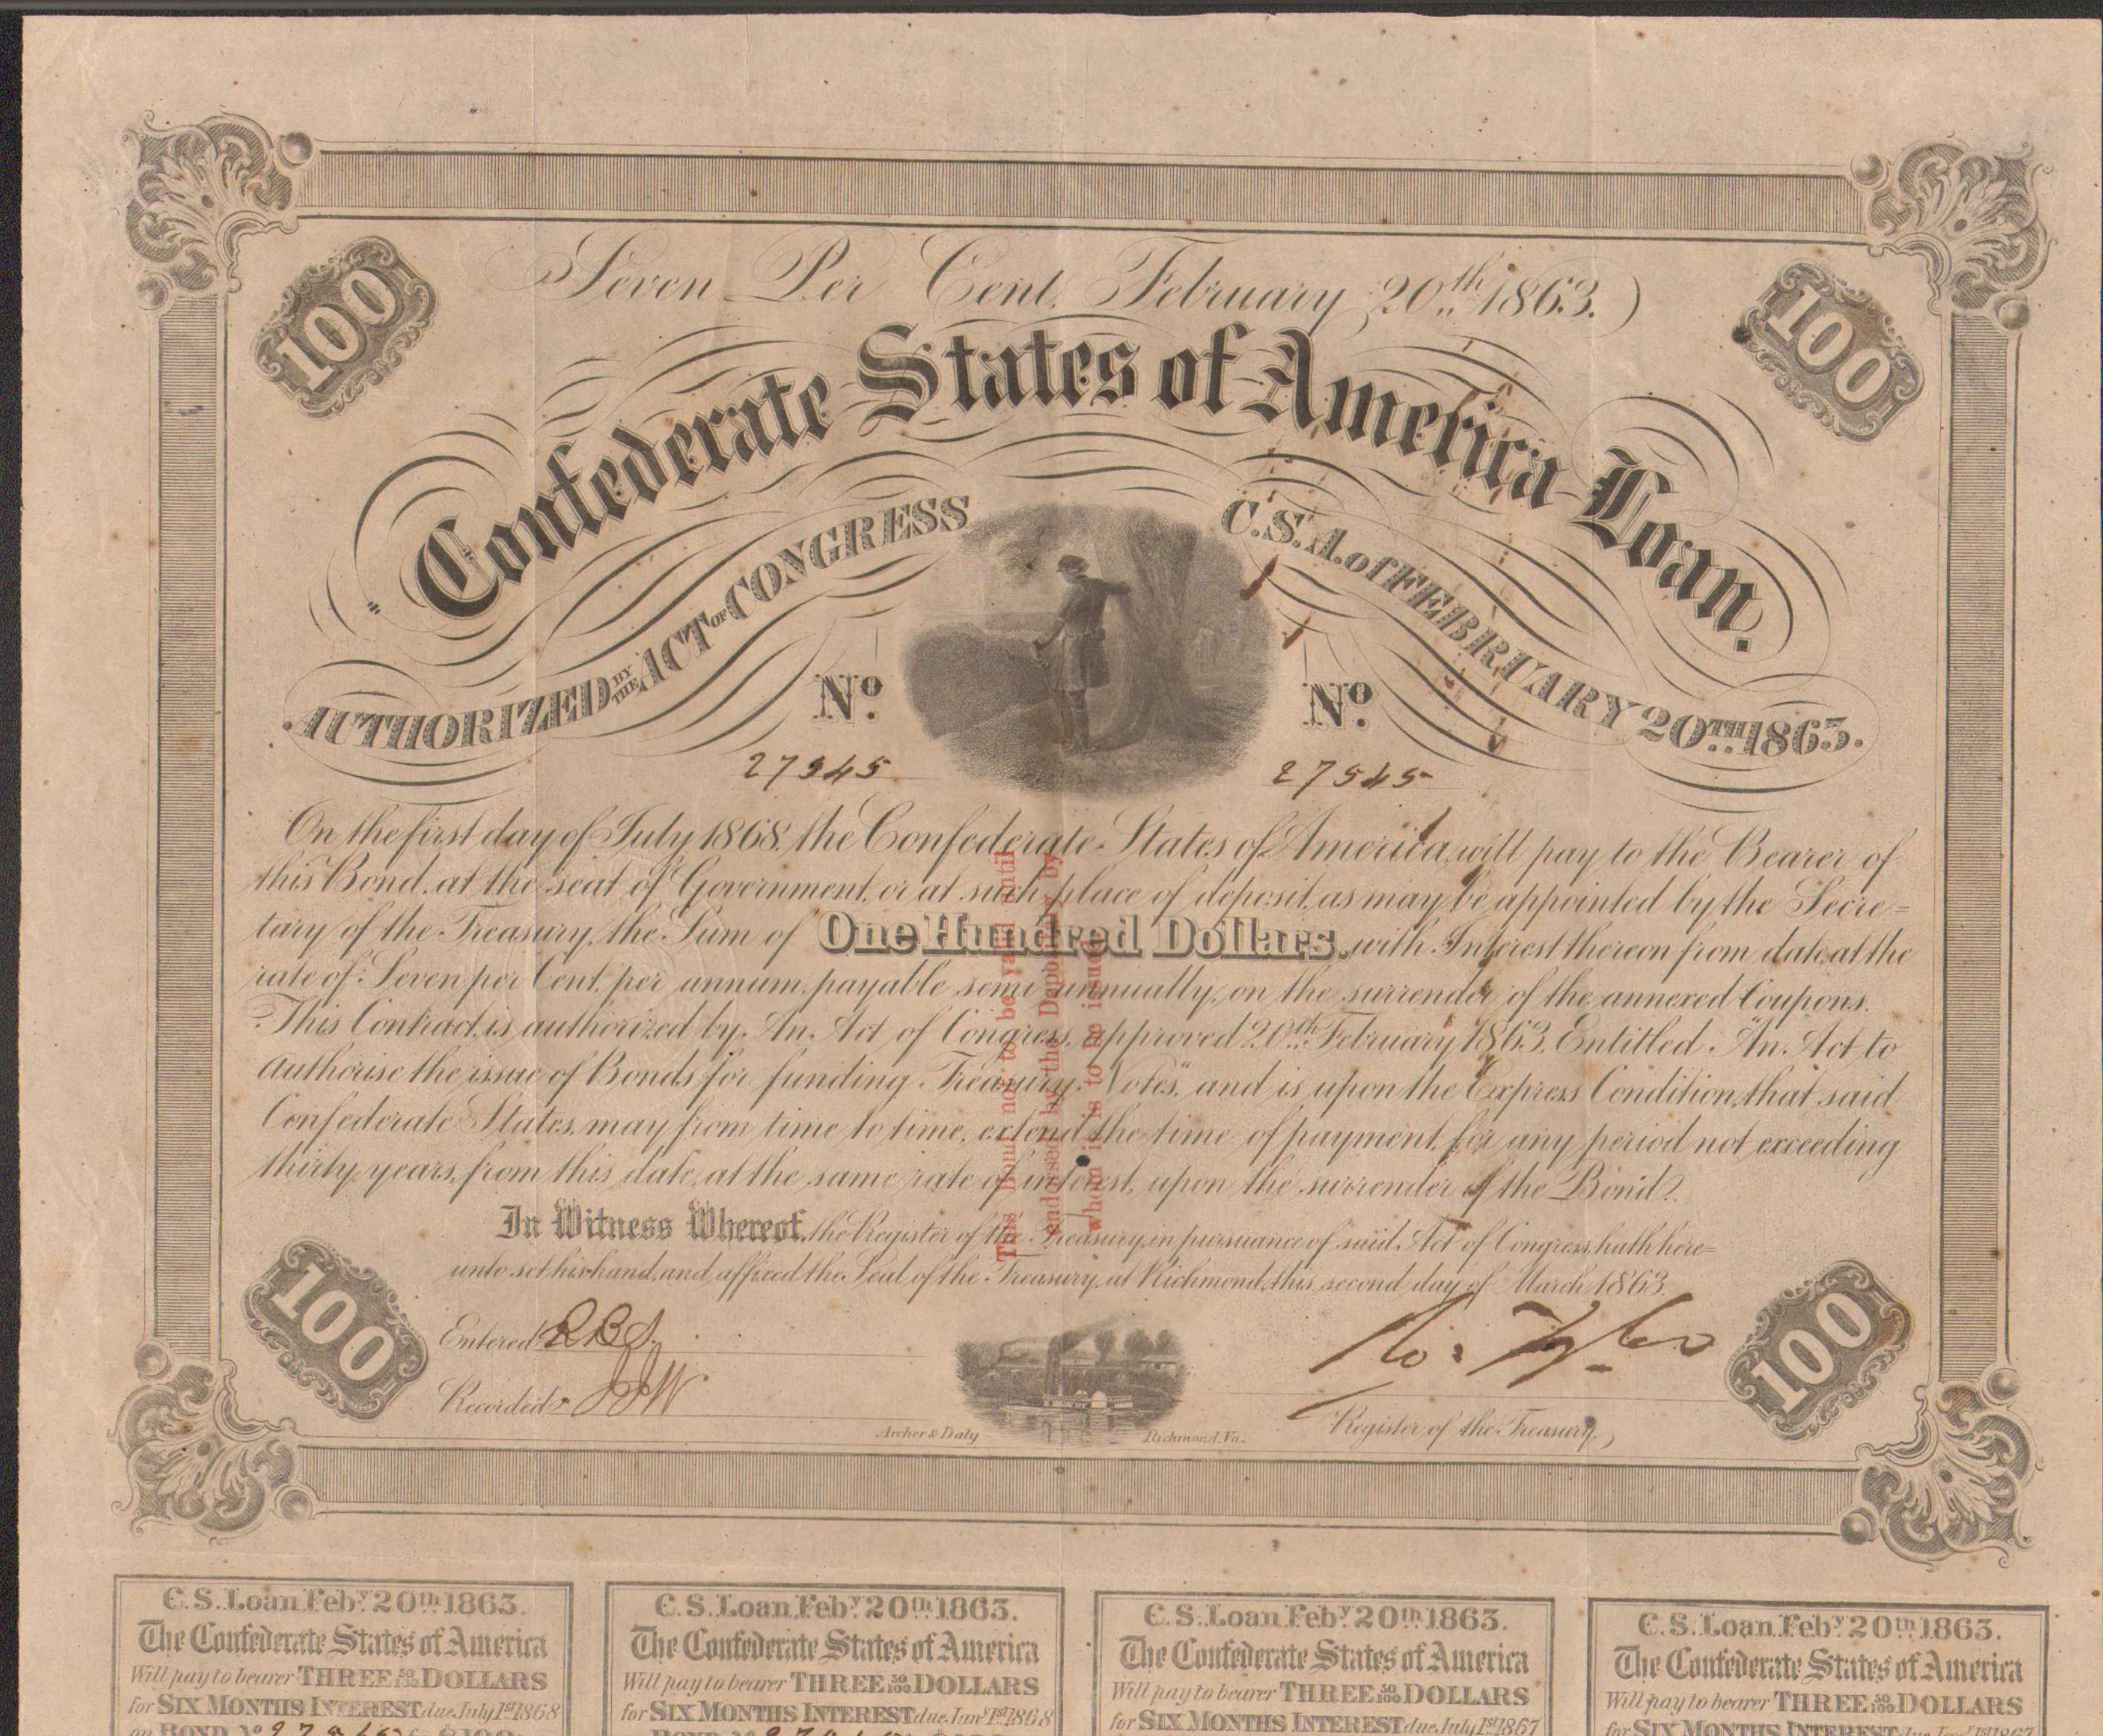 Seven Per Cent. February 20th 1863.
100
100
Confederate States of America Loan.
AUTHORIZED BY THE ACT OF CONGRESS
C.S.A. of FEBRUARY 20TH 1863.
No.
No.
On the first day of July 1868, the Confederate States of America, will pay to the Bearer of
this Bond, at the seat of Government, or at such place of deposit, as may be appointed by the Secre=
tary of the Treasury, the Sum of One Hundred Dollars, with Interest thereon from date, at the
rate of Seven per Cent. per annum, payable semi annually, on the surrender of the annexed Coupons.
This Contract, is authorized by An Act of Congress, approved 20th February 1863, Entitled "An Act to
Authorise the issue of Bonds for funding Treasury Notes", and is upon the Express Condition, that said
Confederate States, may from time to time, extend the time of payment, for any period not exceeding
thirty years, from this date, at the same rate of interest, upon the surrender of the Bond.
This Bond not to be valid until
endorsed by the Depositary by
whom it is to be issued
In Witness Whereof, the Register of the Treasury, in pursuance of said Act of Congress, hath here=
unto set his hand, and affixed the Seal of the Treasury, at Richmond, this second day of March 1863.
100
100
Entered
Recorded JJW
Ro: Tyler
Register of the Treasury
Archer & Daly
Richmond, Va.
C.S. Loan Feby. 20th 1863.
The Confederate States of America
Will pay to bearer THREE 50/100 DOLLARS
for SIX MONTHS INTEREST due July 1st 1868
on BOND No
C.S. Loan Feby. 20th 1863.
The Confederate States of America
Will pay to bearer THREE 50/100 DOLLARS
for SIX MONTHS INTEREST due Jany 1st 1868
BOND No
C.S. Loan Feby. 20th 1863.
The Confederate States of America
Will pay to bearer THREE 50/100 DOLLARS
for SIX MONTHS INTEREST due July 1st 1867
C.S. Loan Feby. 20th 1863.
The Confederate States of America
Will pay to bearer THREE 50/100 DOLLARS
for SIX MONTHS INTEREST